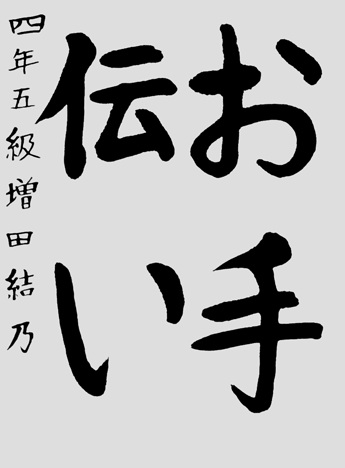 お手
伝い
四年五級増田結乃